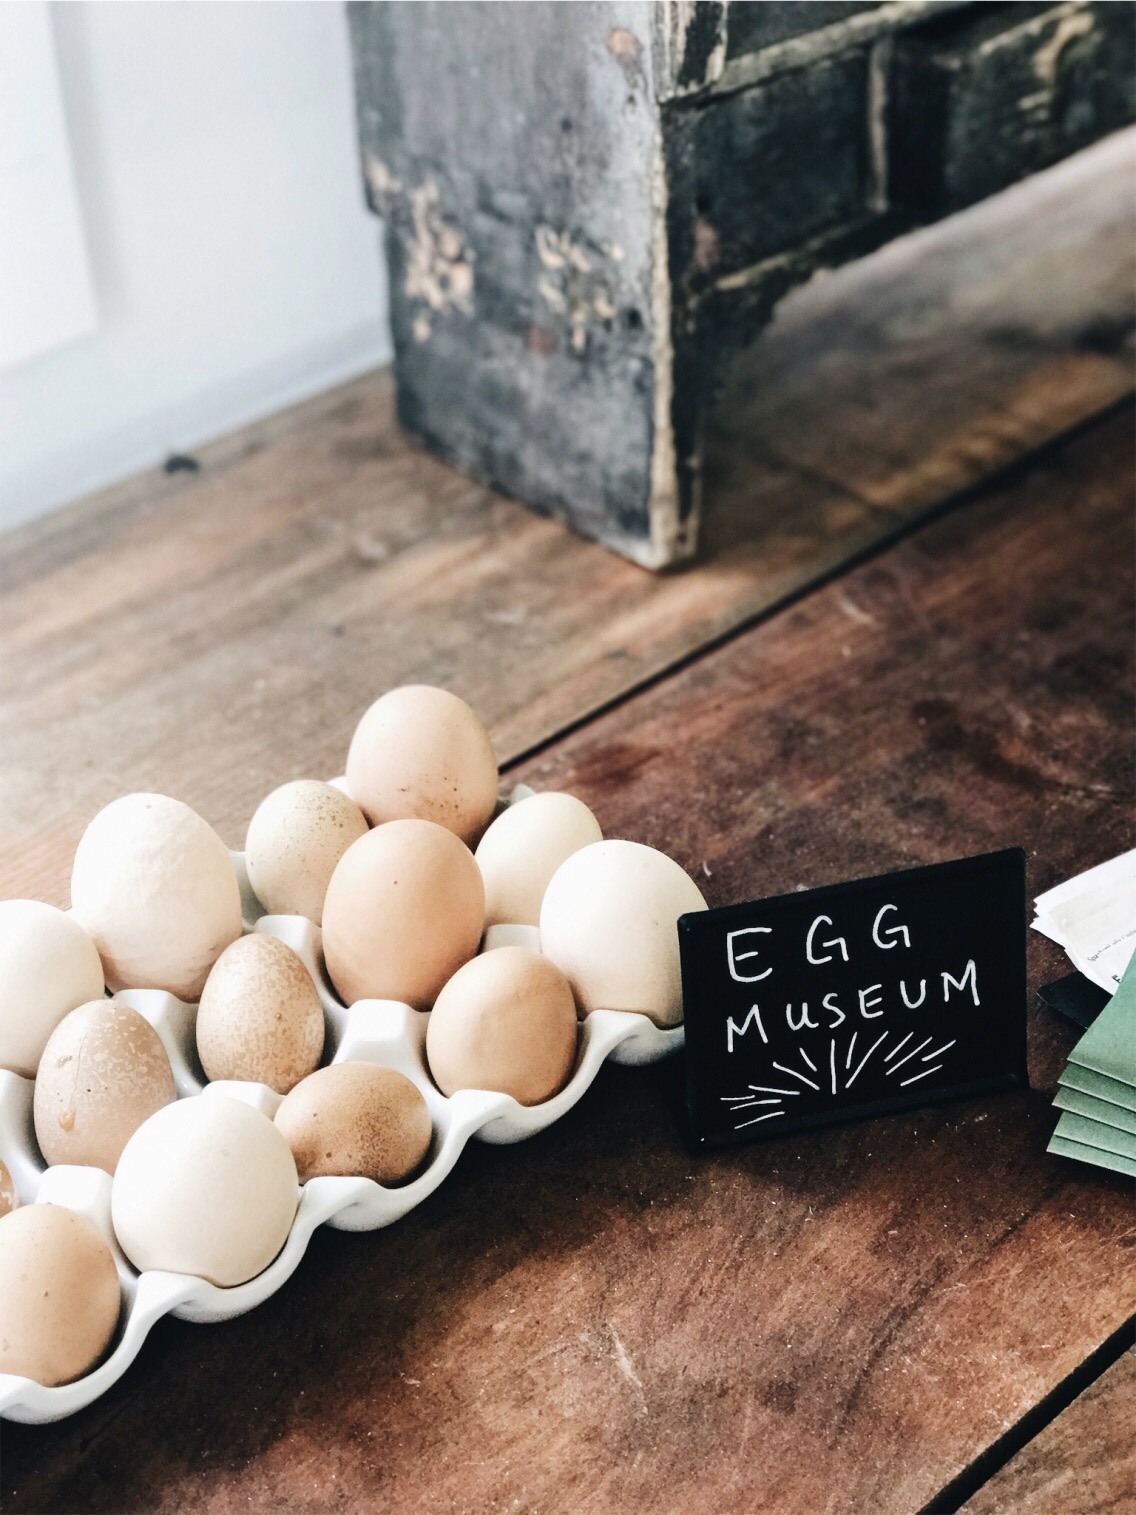 EGG
MUSEUM